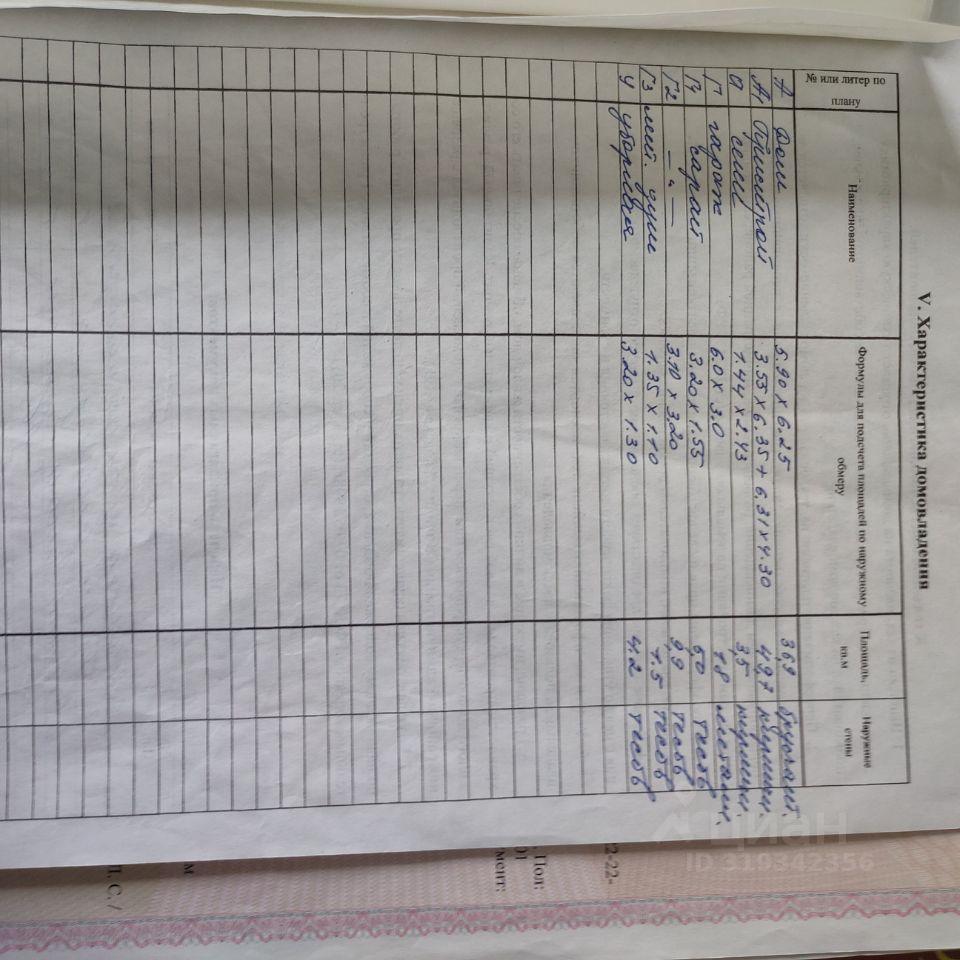 V. Характеристика домовладения
№ или литер по плану Наименование Формулы для подсчета площадей по наружному обмеру Площадь, кв.м Наружные стены
А Дом 5.90 x 6.25 36,9 брусчат.
А1 Пристрой 3.55 x 6.35 + 6,31 x 4.30 49,7 кирпичн.
а сени 1.44 x 2.43 3,5 кирпичн.
Г гараж 6.0 x 3.0 18 металл.
Г1 сарай 3.20 x 1.55 5,0 тесов
Г2 — " — 3.10 x 3.20 9,9 тесов
Г3 лет. душ 1.35 x 1.10 1.5 тесов
У уборная 3.20 x 1.30 4,2 тесов
2-22-
Пол:
01
мент:
м
Л. С. /
циан
ID 319342356